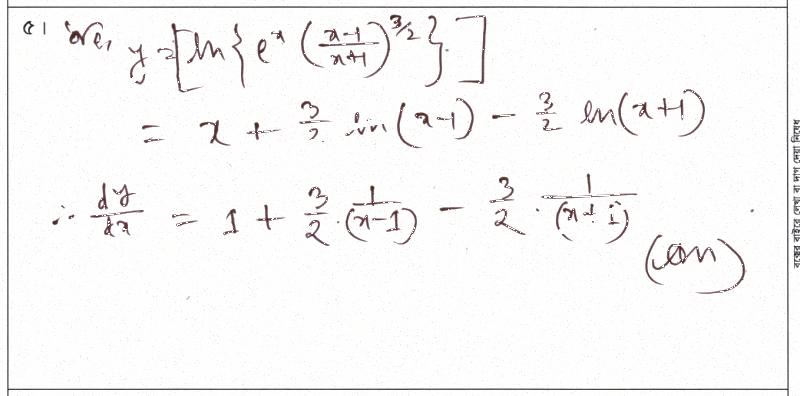 ৫। ধরি, y = [ln{e^x ((x-1)/(x+1))^{3/2}}]
= x + 3/2 ln(x-1) - 3/2 ln(x+1)
∴ dy/dx = 1 + 3/2 · 1/(x-1) - 3/2 · 1/(x+1)
(Ans)
বক্সের বাইরে লেখা বা দাগ দেয়া নিষেধ